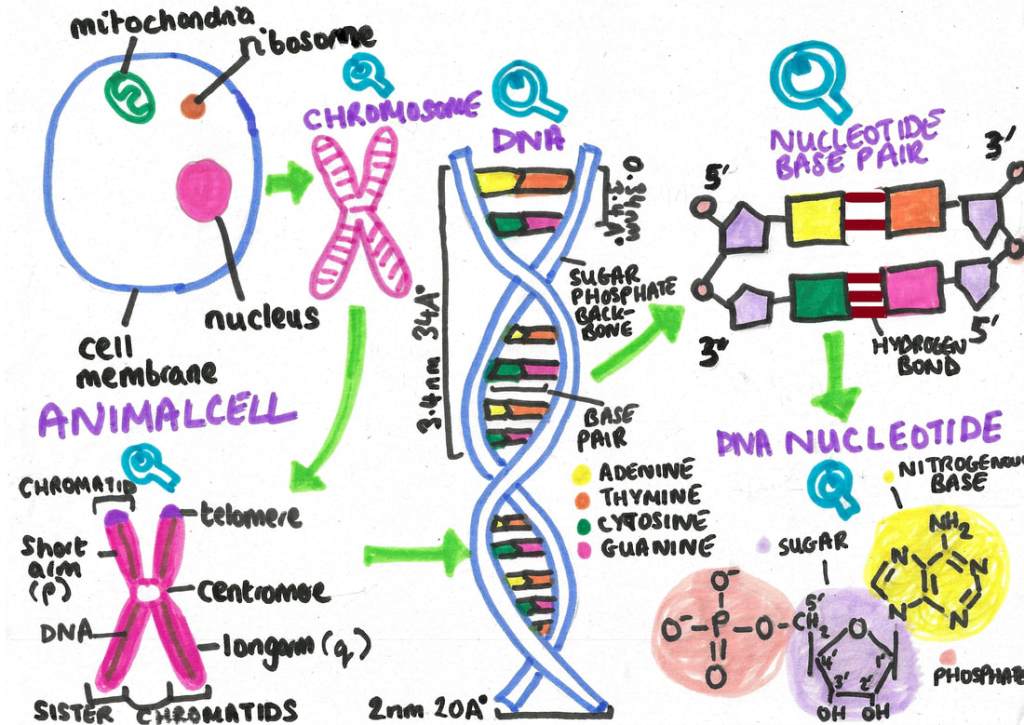 mitochondria
ribosome
nucleus
cell
membrane
ANIMAL CELL
CHROMOSOME
DNA
0.34nm
3.4A°
SUGAR
PHOSPHATE
BACK-
BONE
3.4nm 34A°
BASE
PAIR
ADENINE
THYMINE
CYTOSINE
GUANINE
2nm 20A°
NUCLEOTIDE
BASE PAIR
5'
3'
3'
5'
HYDROGEN
BOND
CHROMATID
telomere
Short
arm
(p)
centromere
DNA
long arm (q)
SISTER CHROMATIDS
DNA NUCLEOTIDE
NITROGENOUS
BASE
SUGAR
PHOSPHATE
NH2
N
N
N
N
O-
O- P O CH2
O
5'
O
4'
1'
3' 2'
OH OH